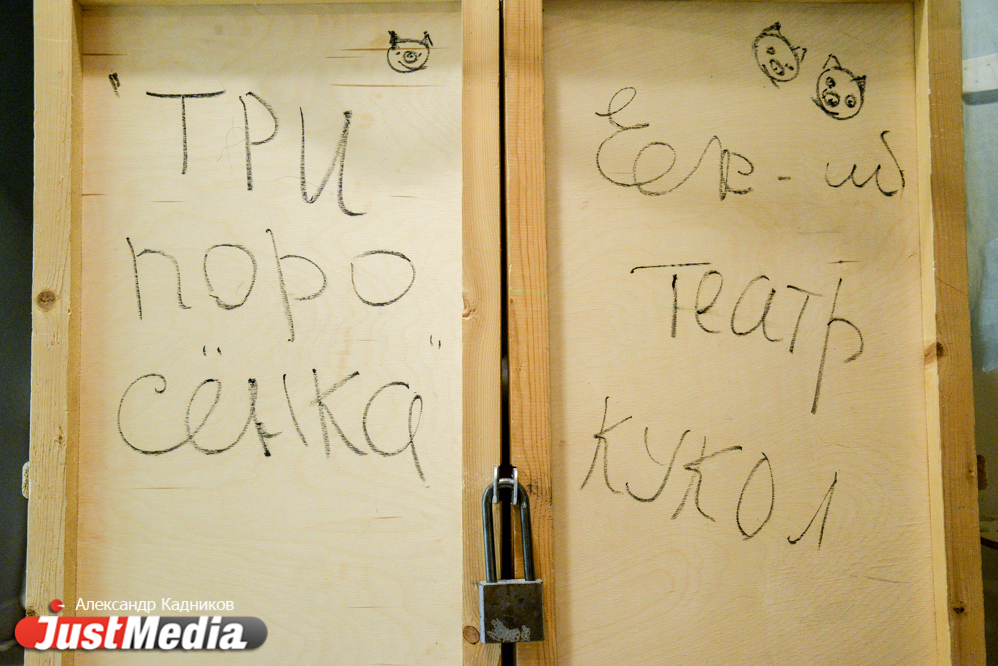 "ТРИ
поро
сёнка"
Ек-ий
театр
кукол
Александр Кадников
JustMedia